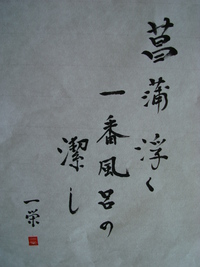 菖蒲浮く
一番風呂の
潔し
一栄